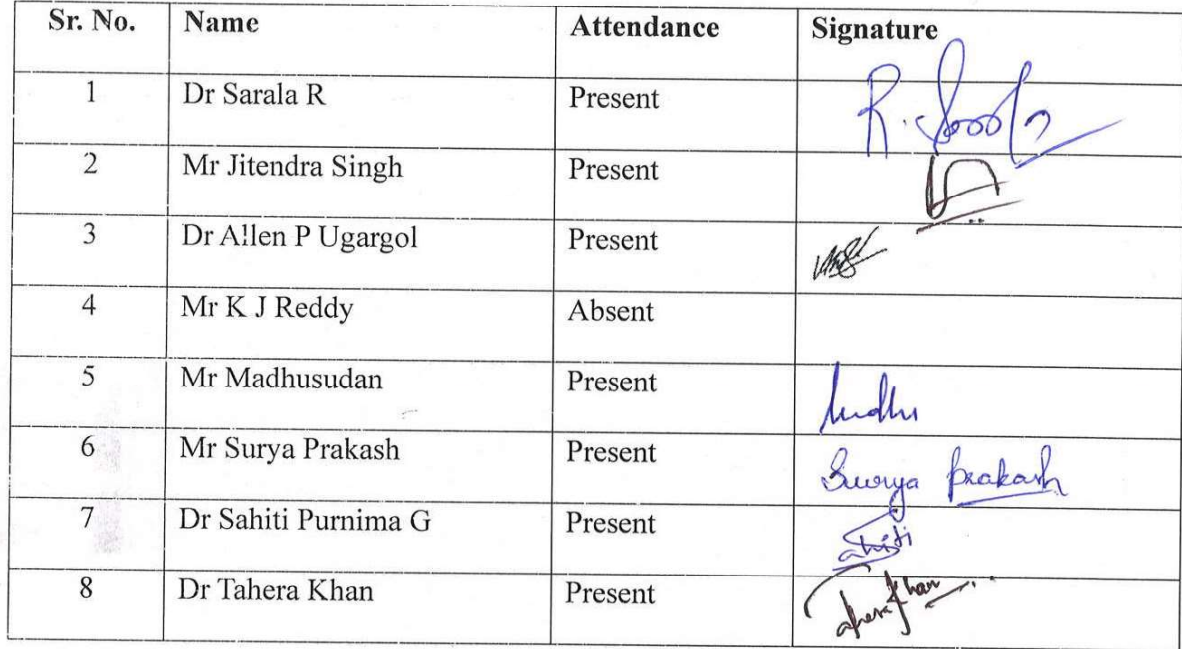 Sr. No. Name Attendance Signature
1 Dr Sarala R Present
2 Mr Jitendra Singh Present
3 Dr Allen P Ugargol Present
4 Mr K J Reddy Absent
5 Mr Madhusudan Present
6 Mr Surya Prakash Present Surya Prakash
7 Dr Sahiti Purnima G Present
8 Dr Tahera Khan Present